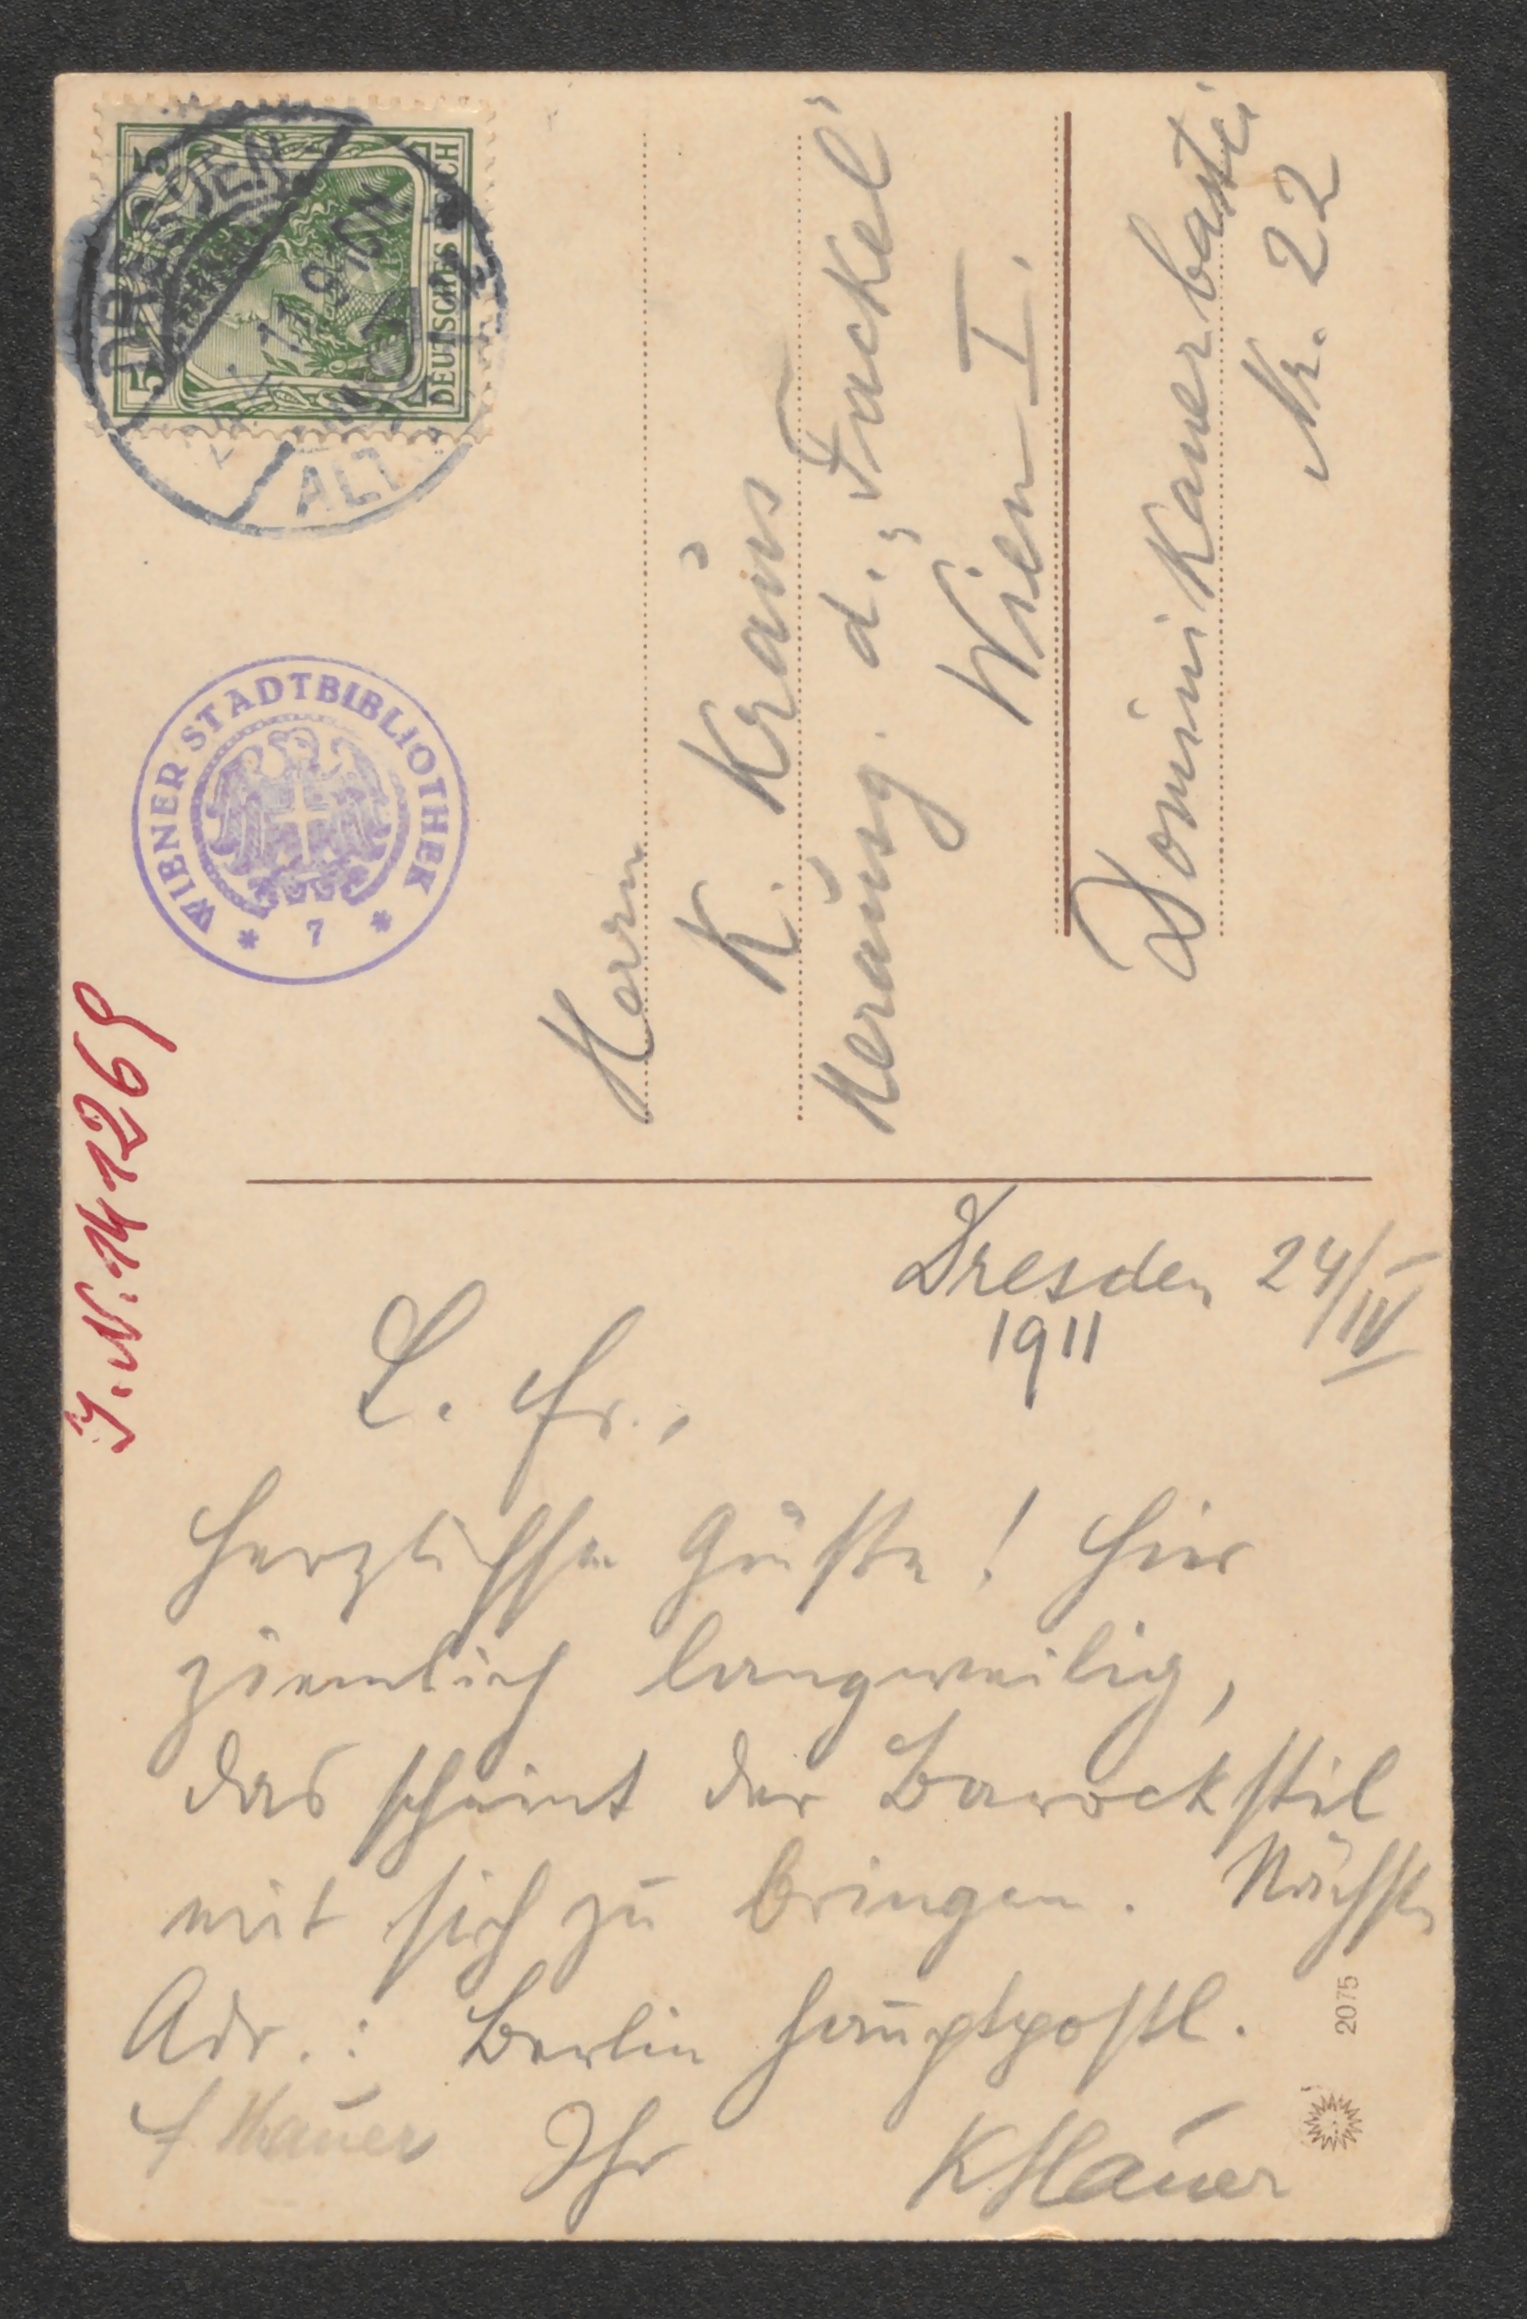 DEUTSCHES REICH
5 5
DRESDEN
ALT
WIENER STADTBIBLIOTHEK
* 7 *
J. N. 141269
Herrn
K. Kraus
Herausg. d. „Fackel"
Wien I.
Dominikanerbastei
Nr. 22
Dresden 24/IV
1911
L. Fr.,
herzlichste Grüße! Hier
ziemlich langweilig,
das scheint der Barockstil
mit sich zu bringen. Nächste
Adr.: Berlin hauptpostl.
Ihr KHauer
Hauer
2075